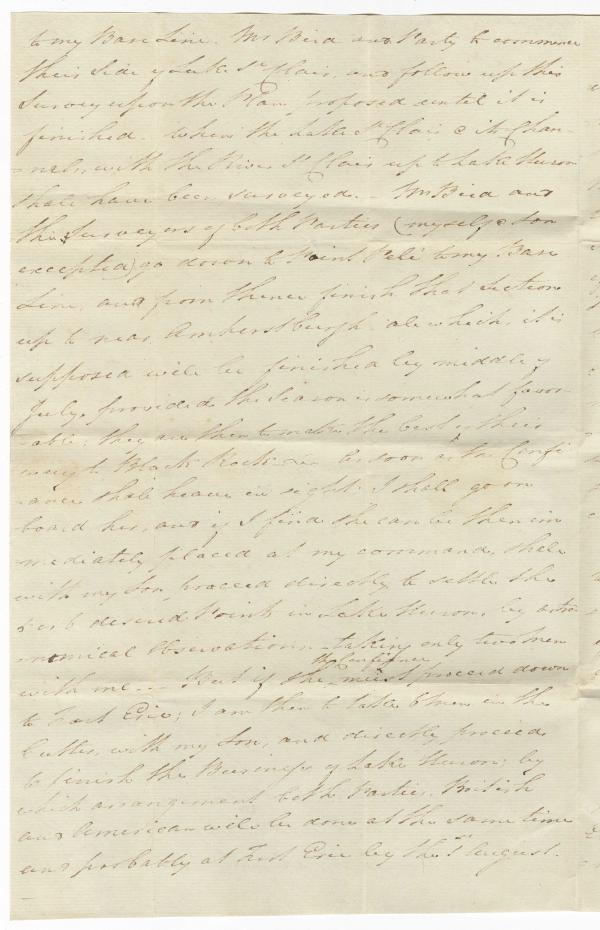 to my Base Line. Mr Bird and Party to commence
their side of Lake St Clair, and follow up this
Survey upon the Plan proposed until it is
finished. When the Lake St Clair & its Chan-
-nels with the River St Clair up to Lake Huron
shall have been surveyed. Mr Bird and
the Surveyors of both Parties (myself & Son
excepted) go down to Point Pelé to my Base
Line, and from thence finish that Section
up to near Amherstburgh all which it is
supposed will be finished by middle of
July, provided the Season is somewhat favor-
-able; they are then to make the best of their
way to Black Rock. As soon as the Confi-
-ance shall heave in sight I shall go on
board her, and if I find she can be then im
mediately placed at my command, shall
with my Son, proceed directly to settle the
desired Points in Lake Huron, by astro-
-nomical Observations taking only two men
with me. — But if the Confiance must proceed down
to Fort Erie; I am then to take 6 men in the
Cutter, with my Son, and directly proceed
to finish the Business of Lake Huron; by
which arrangement both Parties, British
and American will be done at the same time
and probably at Fort Erie by the 1st August.